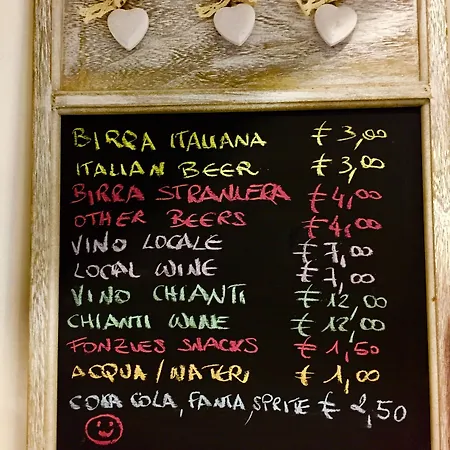 BIRRA ITALIANA € 3,00
ITALIAN BEER € 3,00
BIRRA STRANIERA € 4,00
OTHER BEERS € 4,00
VINO LOCALE € 7,00
LOCAL WINE € 7,00
VINO CHIANTI € 12,00
CHIANTI WINE € 12,00
FONZIES SNACKS € 1,50
ACQUA/WATER € 1,00
COKA COLA, FANTA, SPRITE € 2,50